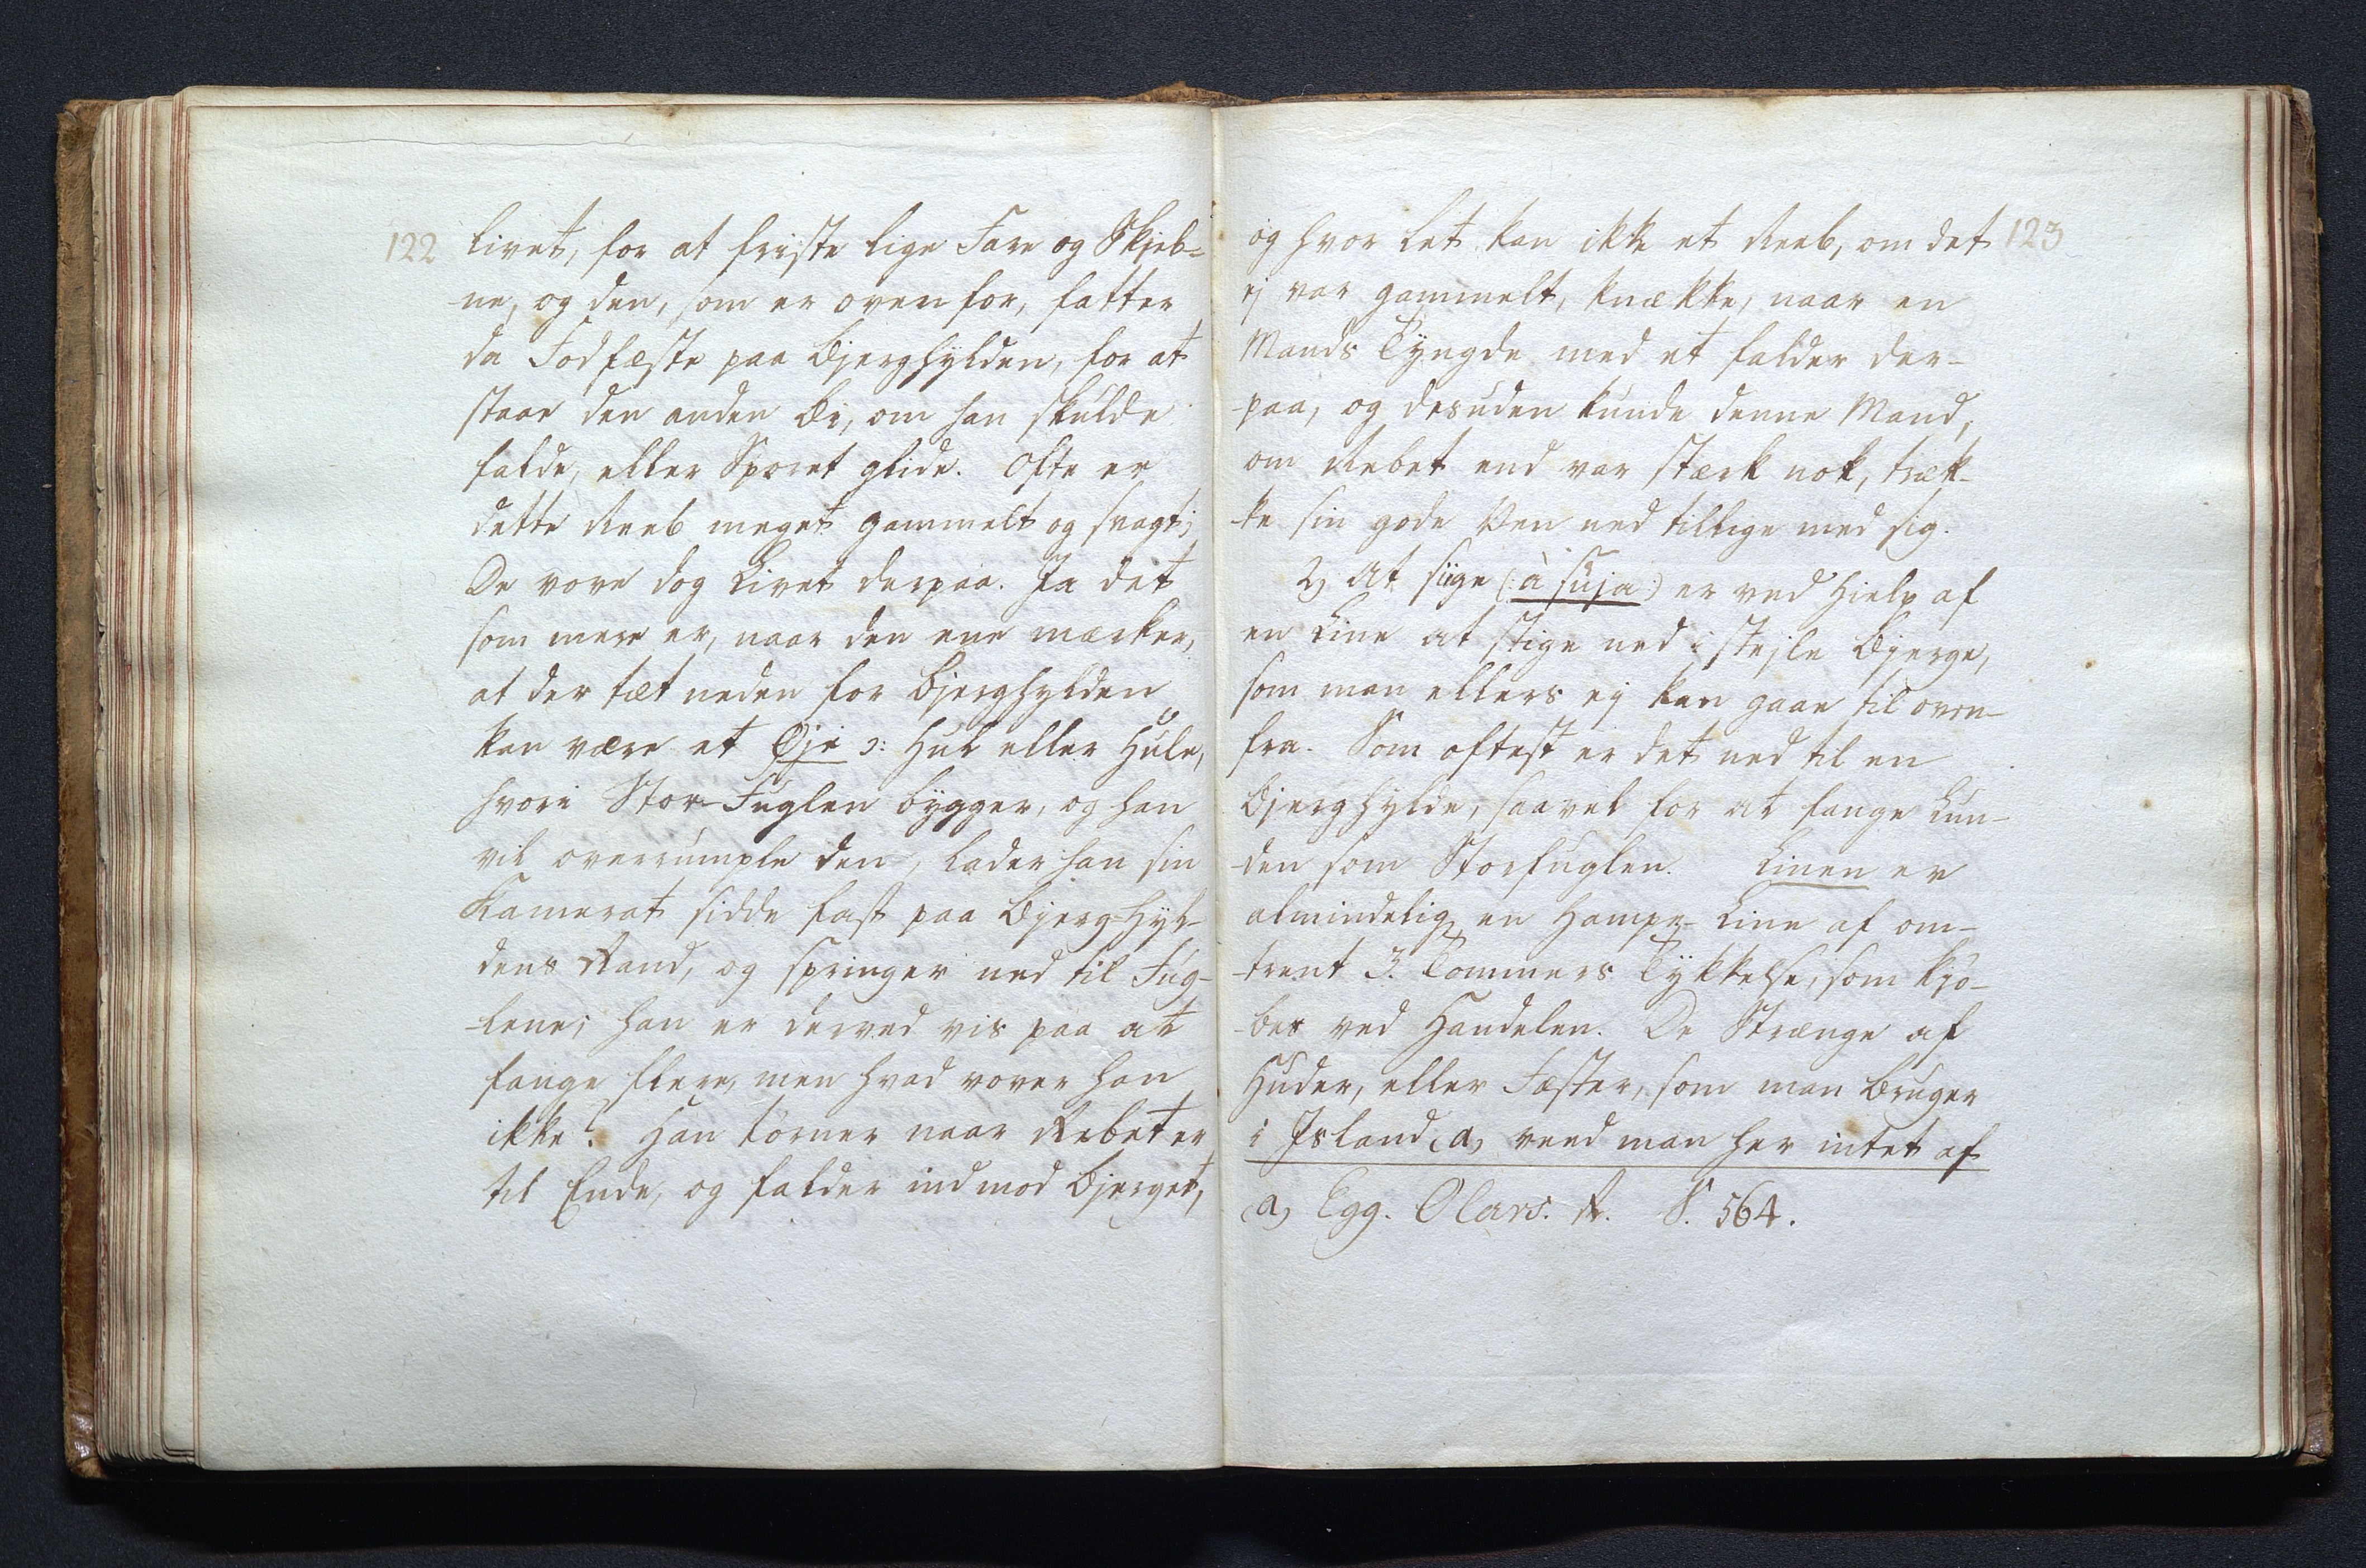 122
livet, for at friste lige Fare og Skjeb-
ne, og den, som er oven for, fatter
da Fodfæste paa Bjerghylden, for at
staae den anden Bi, om han skulde
falde, eller Sporet glide. Ofte er
dette Reeb meget gammelt og svagt;
De vove dog Livet derpaa. Ja det
som mere er, naar den ene mærker,
at der tæt neden for Bjerghylden
kan være et Øje ɔ: Hul eller Hule,
hvori Stor-Fuglen bygger, og han
vil overrumple den, lader han sin
Kamerat sidde fast paa Bjerg-Hyl-
dens Rand, og springer ned til Fug-
lene; han er derved vis paa at
fange flere, men hvad vover han
ikke? Han tørner naar Rebet er
til Ende, og falder ind mod Bjerget,
123
og hvor let kan ikke et Reeb, om det
ej var gammelt, knække, naar en
Mands Tyngde med et falder der-
paa, og desuden kunde denne Mand,
om Rebet end var stærk nok, træk-
ke sin gode Ven ned tillige med sig.
2) At siige (: à suja :) er ved Hielp af
en Line at stige ned i stejle Bjerge,
som man ellers ej kan gaae til oven-
fra. Som oftest er det ned til en
Bjerghylde, saavel for at fange Lun-
den som Storfuglen. Linen er
almindelig en Hampe-Line af om-
trent 3. Tommers Tykkelse, som kjø-
bes ved Handelen. De Strænge af
Huder, eller Faster, som man bruger
i Island (a) veed man her intet af
(a) Egg. Olavs. R. S. 564.